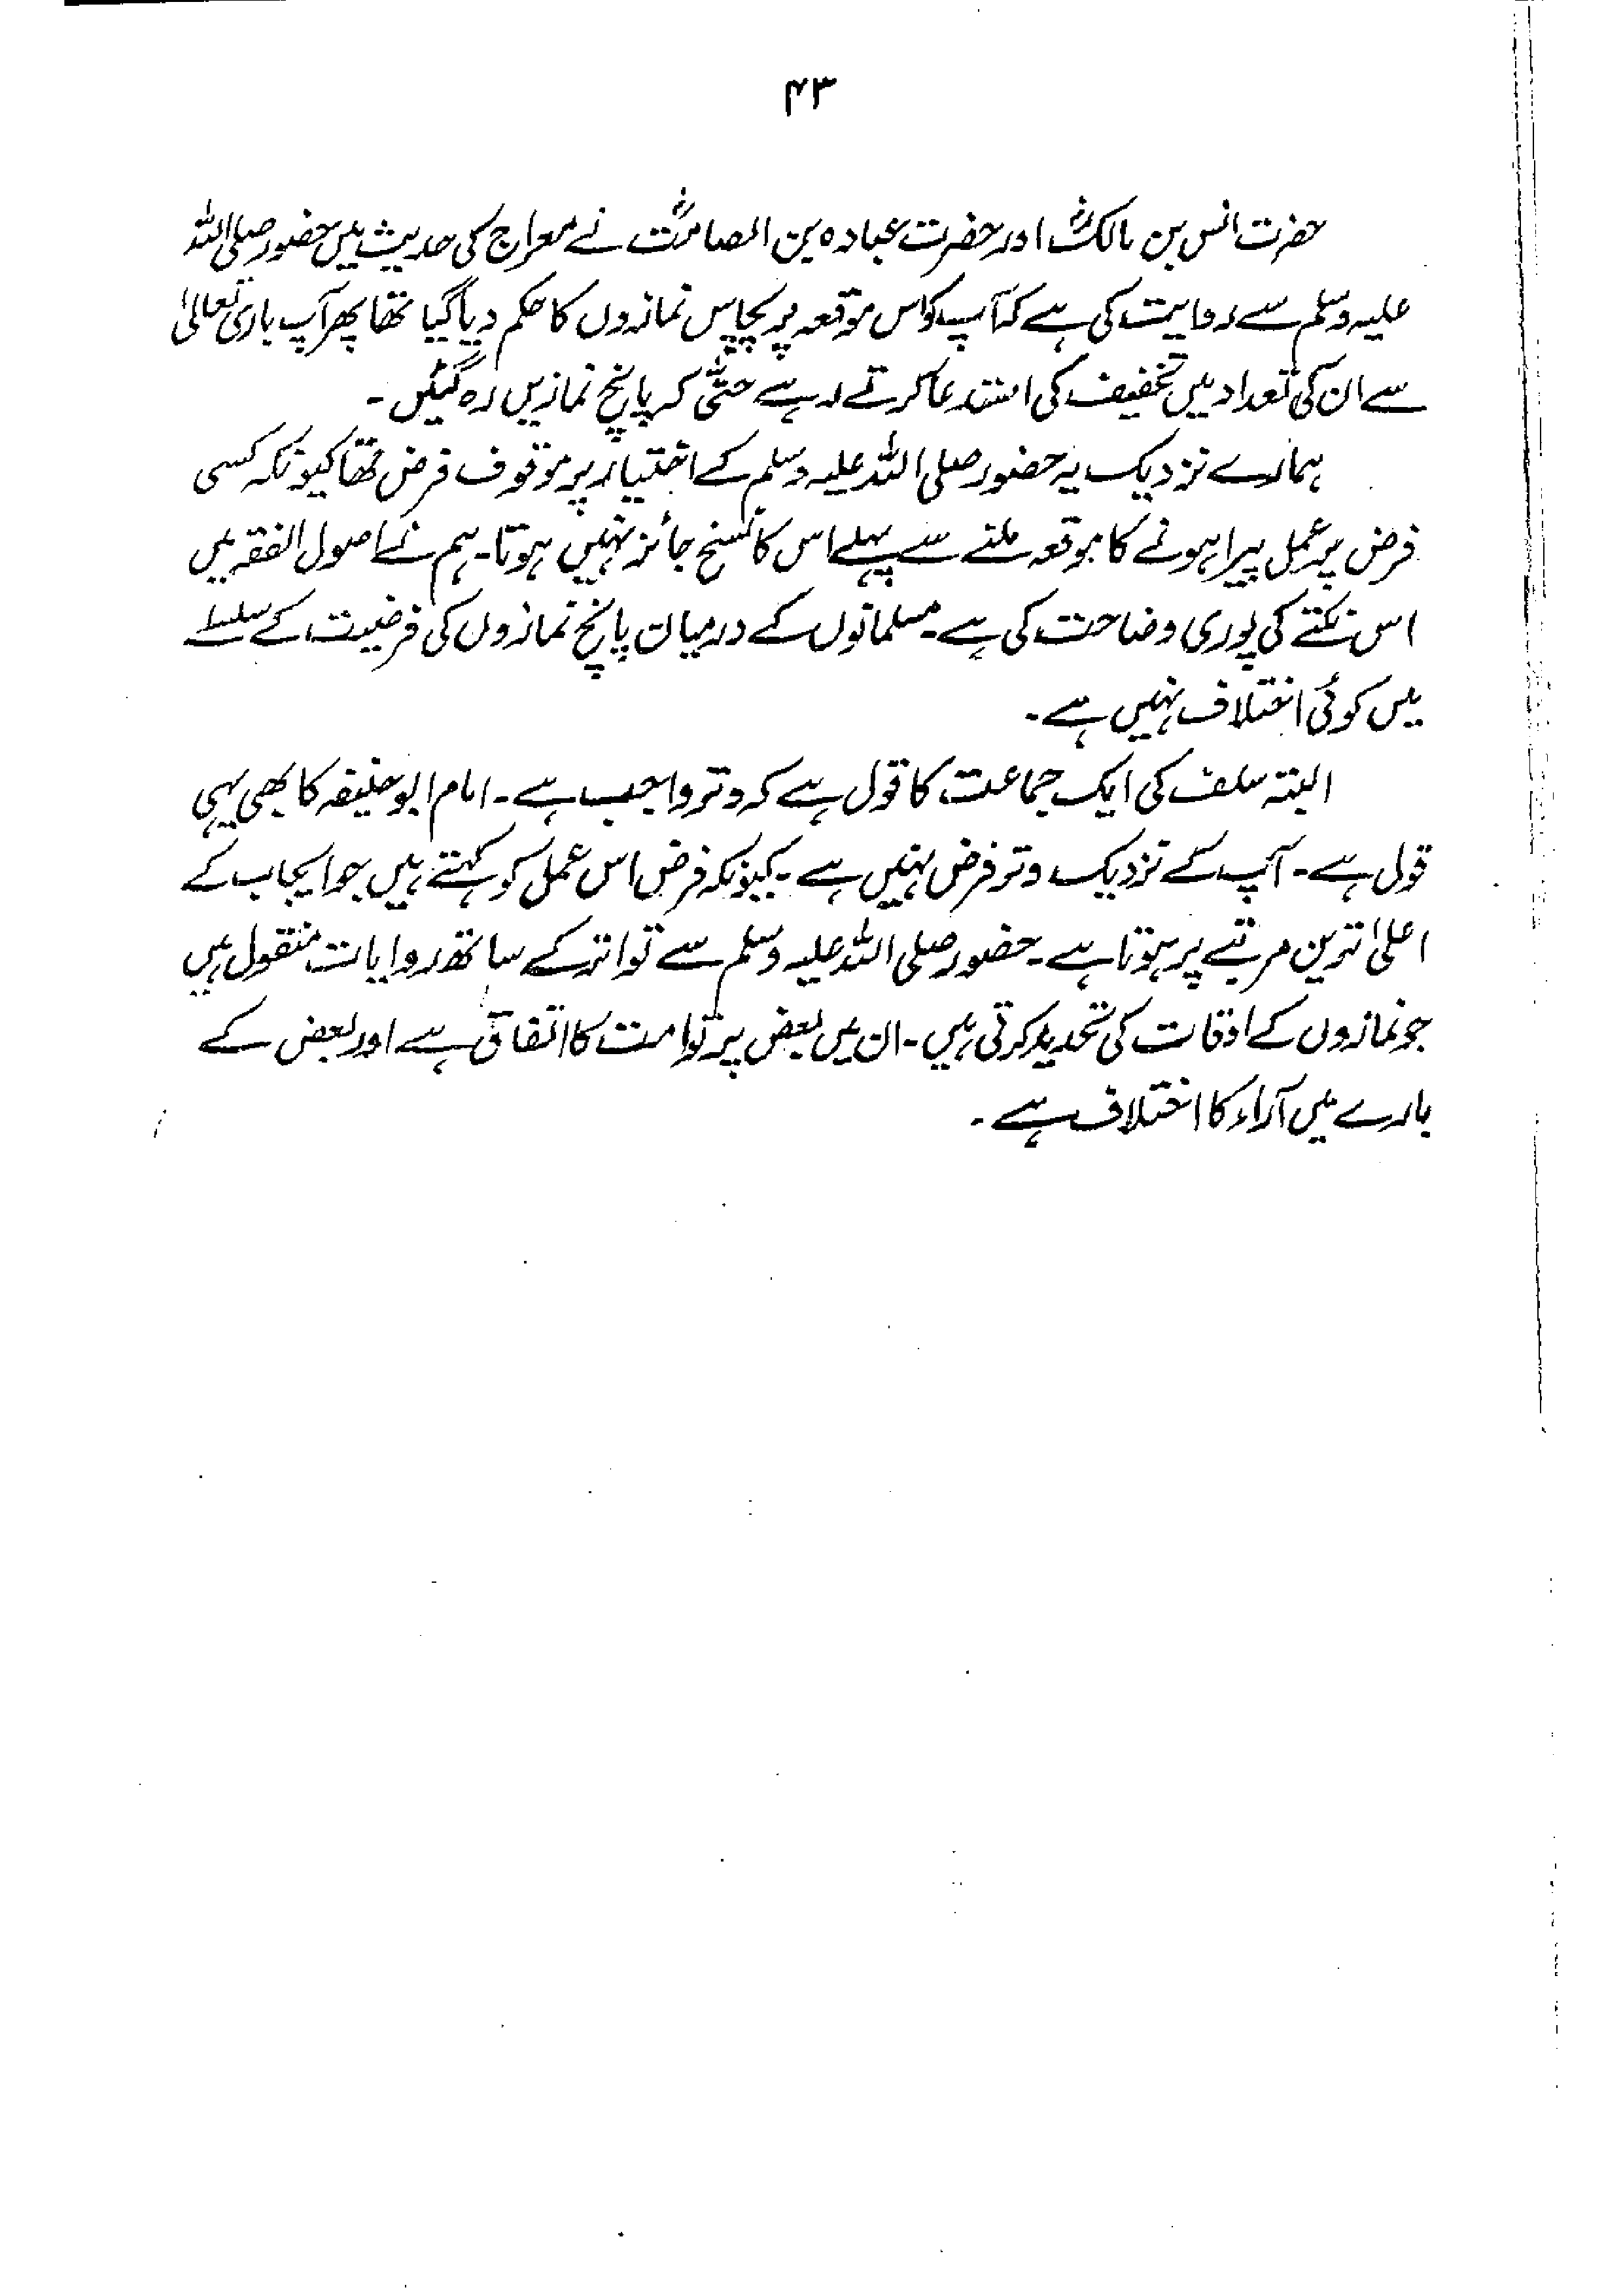 ۴۳
حضرت انس بن مالکؓ اور حضرت عبادہ بن الصامتؓ نے معراج کی حدیث میں حضور صلی اللہ
علیہ وسلم سے روایت کی ہے کہ آپ کو اس موقعہ پر پچاس نمازوں کا حکم دیا گیا تھا پھر آپ باری تعالیٰ
سے ان کی تعداد میں تخفیف کی استدعا کرتے رہے حتّٰی کہ پانچ نمازیں رہ گئیں۔
ہمارے نزدیک یہ حضور صلی اللہ علیہ وسلم کے اختیار پر موقوف فرض تھا کیونکہ کسی
فرض پر عمل پیرا ہونے کا موقعہ ملنے سے پہلے اس کا نسخ جائز نہیں ہوتا۔ ہم نے اصول الفقہ میں
اس نکتے کی پوری وضاحت کی ہے۔ مسلمانوں کے درمیان پانچ نمازوں کی فرضیت کے سلسلے
میں کوئی اختلاف نہیں ہے۔
البتہ سلف کی ایک جماعت کا قول ہے کہ وتر واجب ہے۔ امام ابو حنیفہ کا بھی یہی
قول ہے۔ آپ کے نزدیک وتر فرض نہیں ہے۔ کیونکہ فرض اس عمل کو کہتے ہیں جو ایجاب کے
اعلیٰ ترین مرتبے پر ہوتا ہے۔ حضور صلی اللہ علیہ وسلم سے تواتر کے ساتھ روایات منقول ہیں
جو نمازوں کے اوقات کی تحدید کرتی ہیں۔ ان میں بعض پر توامت کا اتفاق ہے اور بعض کے
بارے میں آراء کا اختلاف ہے۔